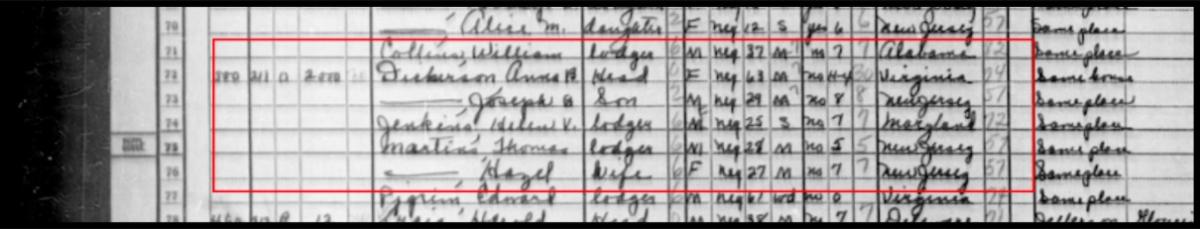 70 Alice M. daughter 2 F neg 12 S yes 6 6 New Jersey 57 Same place
71 Collins William lodger 6 M neg 37 M no 7 7 Alabama 82 Same place
72 300 211 O 2000 Dickerson Anna B. Head 6 F neg 63 M no H-4 30 Virginia 74 Same house
73 Joseph B Son 2 M neg 29 M no 8 8 New Jersey 57 Same place
74 Jenkins, Helen V. lodger 6 neg 25 S no 7 7 Maryland 72 Same place
75 Martins Thomas lodger 6 M neg 28 M no 5 5 New Jersey 57 Same place
76 Hazel Wife 6 F neg 27 M no 7 7 New Jersey 57 Same place
77 Pilgrim, Edward lodger M neg 61 wd no 0 Virginia 74 Same place
78 Head M neg 38 M no 7 7